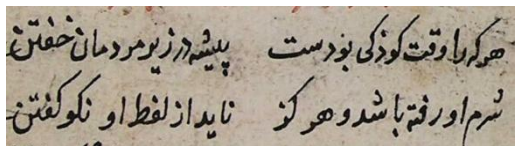 هر که را وقت کوذکی بودست پیشه در زیر مردمان خفتن
شرم او رفته باشد و هر کز ناید از لفظ او نکو کفتن